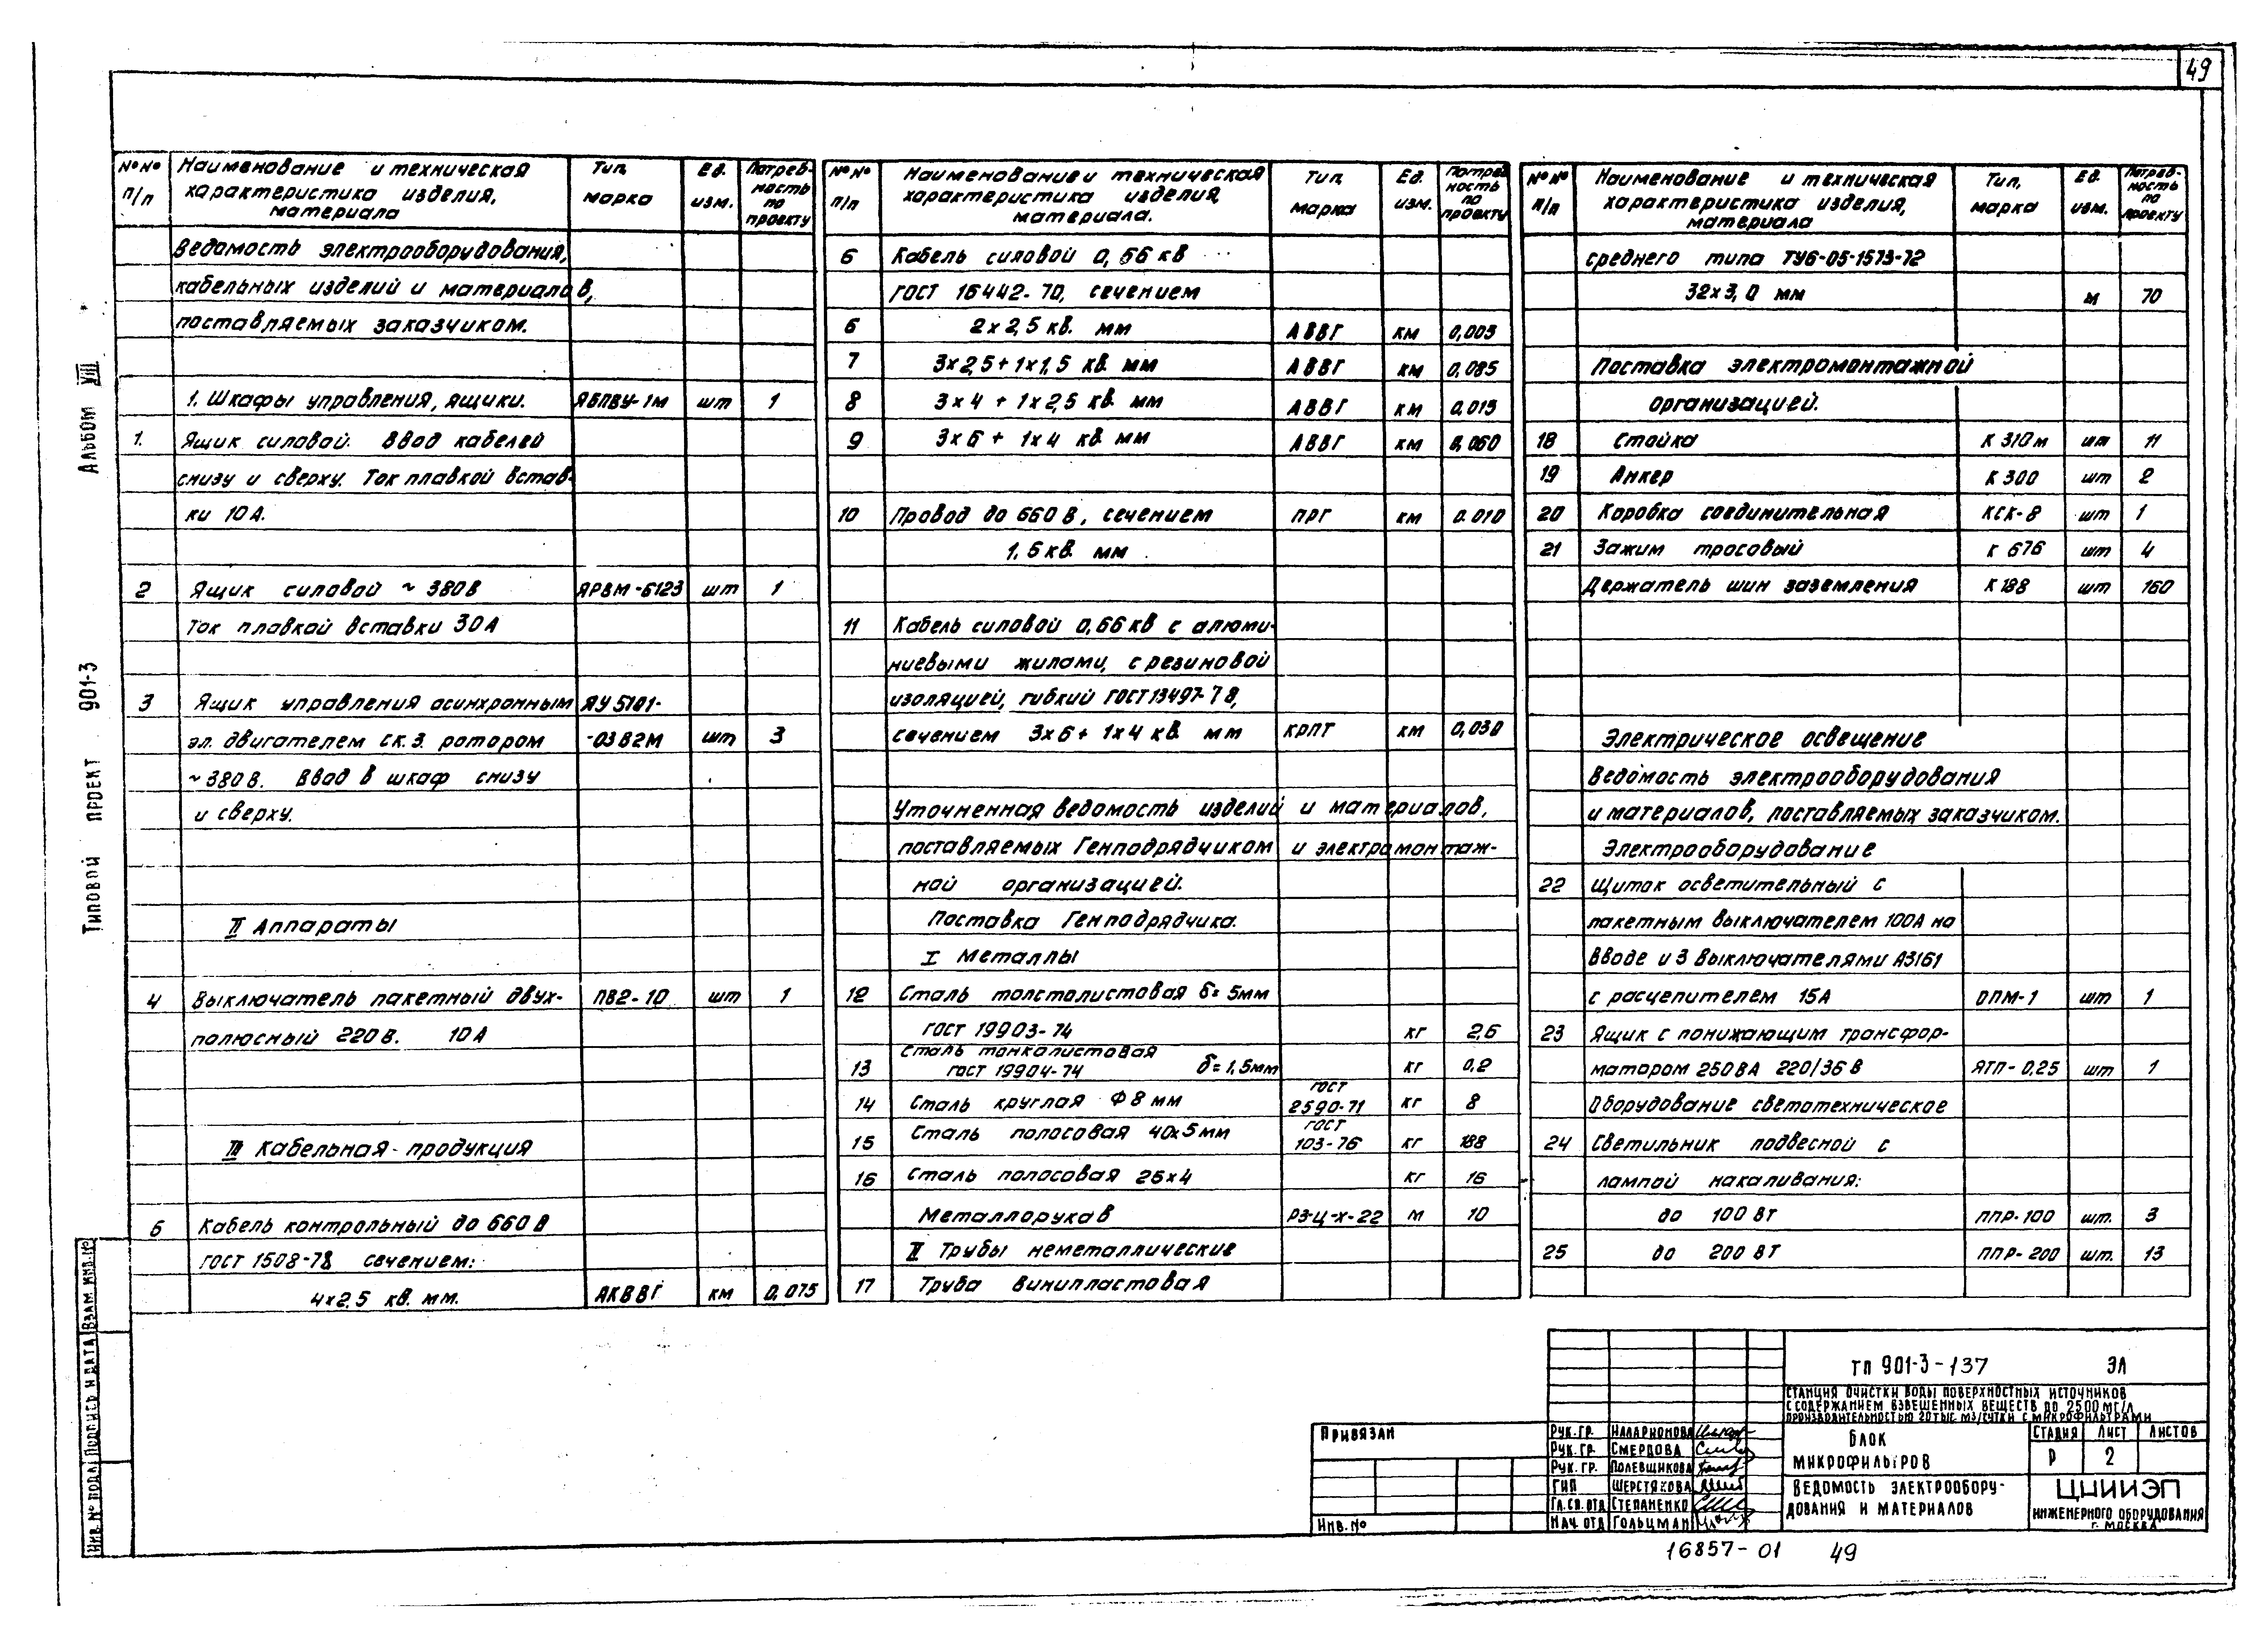 49
№№ п/п
Наименование и техническая характеристика изделия, материала
Тип, марка
Ед. изм.
Потребность по проекту
Ведомость электрооборудования,
кабельных изделий и материалов,
поставляемых заказчиком.
1. Шкафы управления, ящики. ЯБПВУ-1м шт 1
1. Ящик силовой. Ввод кабелей
снизу и сверху. Ток плавкой встав-
ки 10А.
2 Ящик силовой ~ 380В ЯРВМ-6123 шт 1
Ток плавкой вставки 30А
3 Ящик управления асинхронным ЯУ5101-
эл. двигателем с к.з. ротором -03В2М шт 3
~380В. Ввод в шкаф снизу
и сверху.
II Аппараты
4 Выключатель пакетный двух- ПВ2-10 шт 1
полюсный 220В. 10А
III Кабельная продукция
5 Кабель контрольный до 660В
ГОСТ 1508-78 сечением:
4x2,5 кв. мм. АКВВГ км 0,075
№№ п/п
Наименование и техническая характеристика изделия, материала.
Тип, марка
Ед. изм.
Потребность по проекту
6 Кабель силовой 0,66кв
ГОСТ 16442-70, сечением
6 2x2,5 кв. мм АВВГ км 0,005
7 3x2,5+1x1,5 кв. мм АВВГ км 0,085
8 3x4 + 1x2,5 кв. мм АВВГ км 0,015
9 3x6 + 1x4 кв. мм АВВГ км 0,060
10 Провод до 660В, сечением ПРГ км 0.010
1.5кв. мм
11 Кабель силовой 0,66кв с алюми-
ниевыми жилами, с резиновой
изоляцией, гибкий ГОСТ13497-78,
сечением 3x6+ 1x4 кв. мм КРПТ км 0,030
Уточненная ведомость изделий и материалов,
поставляемых Генподрядчиком и электромонтаж-
ной организацией.
Поставка Генподрядчика.
I Металлы
12 Сталь толстолистовая δ=5мм
ГОСТ 19903-74 кг 2,6
13 Сталь тонколистовая
ГОСТ 19904-74 δ=1,5мм кг 0,2
14 Сталь круглая Ф8мм ГОСТ 2590-71 кг 8
15 Сталь полосовая 40x5мм ГОСТ 103-76 кг 188
16 Сталь полосовая 25x4 кг 16
Металлорукав РЗ-Ц-Х-22 м 10
II Трубы неметаллические
17 Труба винипластовая
№№ п/п
Наименование и техническая характеристика изделия, материала
Тип, марка
Ед. изм.
Потребность по проекту
среднего типа ТУ6-05-1573-72
32x3,0 мм м 70
Поставка электромонтажной
организацией.
18 Стойка К310м шт 11
19 Анкер К300 шт 2
20 Коробка соединительная КСК-8 шт 1
21 Зажим тросовый К676 шт 4
Держатель шин заземления К188 шт 160
Электрическое освещение
Ведомость электрооборудования
и материалов, поставляемых заказчиком.
Электрооборудование
22 Щиток осветительный с
пакетным выключателем 100А на
вводе и 3 выключателями А3161
с расцепителем 15А ОПМ-1 шт 1
23 Ящик с понижающим трансфор-
матором 250ВА 220/36В ЯТП-0,25 шт 1
Оборудование светотехническое
24 Светильник подвесной с
лампой накаливания:
до 100 ВТ ППР-100 шт. 3
25 до 200 ВТ ППР-200 шт. 13
Типовой проект 901-3 Альбом VIII
Инв.№ подл. Подпись и дата Взам инв.№
Привязан
Инв.№
Рук.гр. Илларионова
Рук.гр. Смердова
Рук.гр. Полевщикова
ГИП Шерстякова
Гл.сп.отд Степаненко
Нач.отд Гольцман
ТП 901-3-137 ЭЛ
Станция очистки воды поверхностных источников
с содержанием взвешенных веществ до 2500мг/л
производительностью 20тыс. м3/сутки с микрофильтрами
Блок
микрофильтров
Стадия Лист Листов
Р 2
Ведомость электрообору-
дования и материалов
ЦНИИЭП
инженерного оборудования
г. Москва
16857-01 49